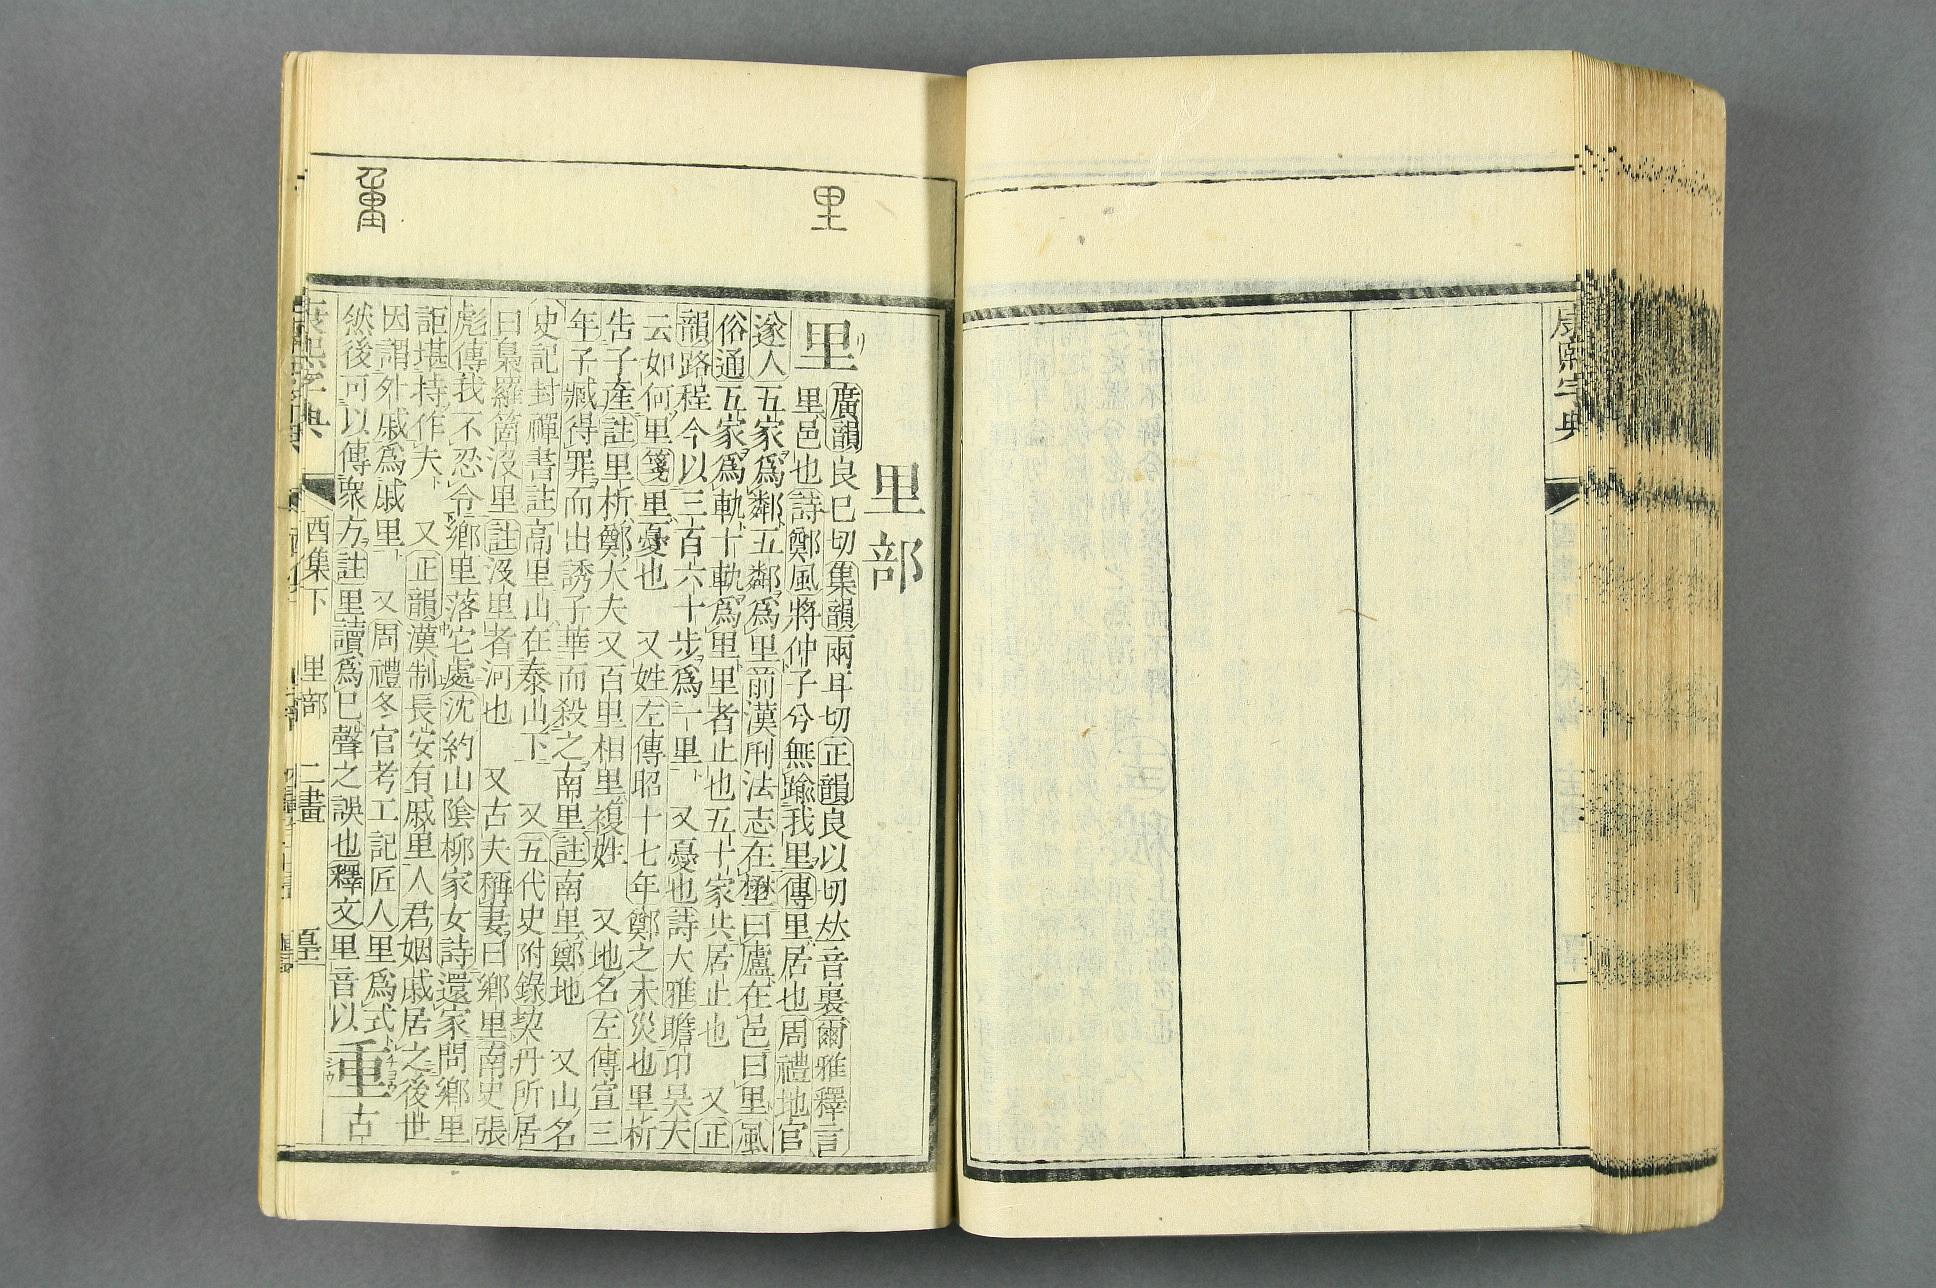 康熙字典
里
里部
里
廣韻良已切集韻兩耳切正韻良以切𠀤音裏爾雅釋言
里邑也詩鄭風將仲子兮無踰我里傳里居也周禮地官
遂人五家爲鄰五鄰爲里前漢刑法志在壄曰廬在邑曰里風
俗通五家爲軌十軌爲里里者止也五十家共居止也 又正
韻路程今以三百六十步爲一里 又憂也詩大雅瞻卬昊天
云如何里箋里憂也 又姓左傳昭十七年鄭之未災也里析
告子產註里析鄭大夫又百里相里複姓 又地名左傳宣三
年子臧得罪而出誘子華而殺之南里註南里鄭地 又山名
史記封禪書註高里山在泰山下 又五代史附錄契丹所居
曰梟羅箇沒里註沒里者河也 又古夫稱妻曰鄉里南史張
彪傳我不忍令鄉里落它處沈約山陰柳家女詩還家問鄉里
詎堪持作夫 又正韻漢制長安有戚里人君姻戚居之後世
因謂外戚爲戚里 又周禮冬官考工記匠人里爲式
然後可以傳衆方註里讀爲已聲之誤也釋文里音以
重
古
康熙字典 酉集下 里部 二畫